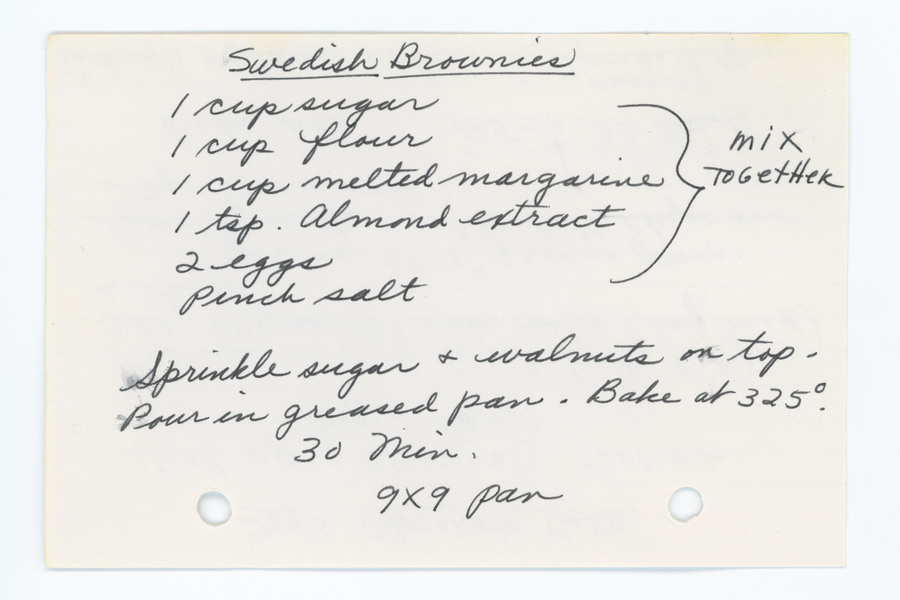 Swedish Brownies
1 cup sugar
1 cup flour
1 cup melted margarine
1 tsp. Almond extract
2 eggs
Pinch salt
mix
TOGETHER
Sprinkle sugar & walnuts on top.
Pour in greased pan. Bake at 325°.
30 Min.
9x9 pan